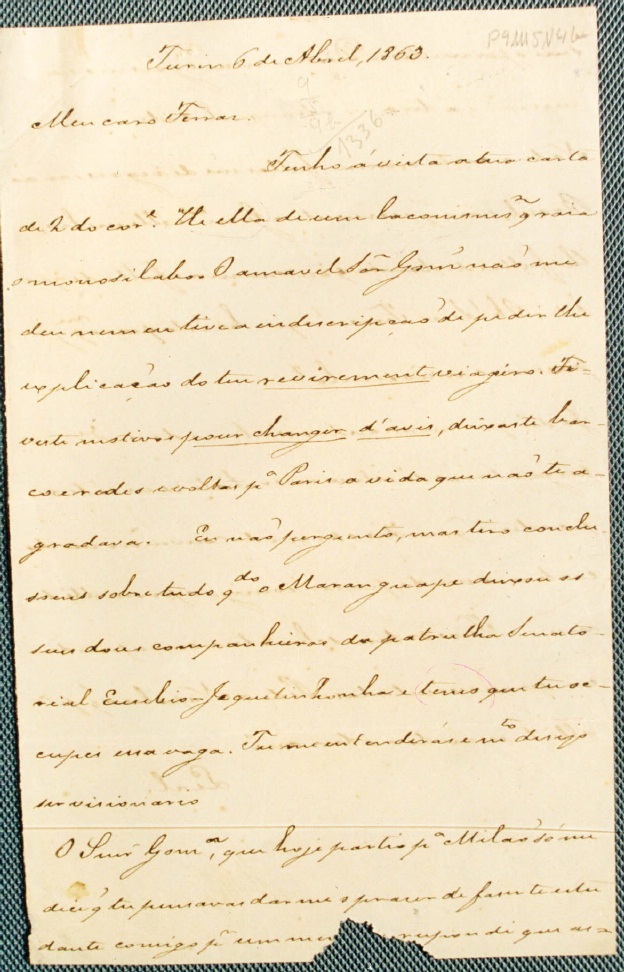 P4M5N4b
Turin 6 de Abril, 1863.
9
9b
1336
Meu caro Ferraz.
Tenho á vista a tua carta
de 2 do corr.e He ella de um laconismo q raia
o monosilabo. O amavel Sõr Gom.s naõ me
deu nem eu tive a indescripçaõ de pedir lhe
explicaçaõ do teu revirement viagéro. Ti-
veste motivos pour changer d'avis, deixaste bar-
co e redes e voltas p.a Paris a vida que naõ te a-
gradava. Eu naõ pergunto, mas tiro conclu-
soens sobre tudo q.do o Maranguape deixou os
seus dous companheiros da patrulha Senato-
rial Eusebio Jequitinhonha e temos que tu oc-
cupes essa vaga. Tu me entenderás e m.to desejo
ser visionario
O Snr Gom.s, que hoje partio p.a Milaõ só me
dice q tu pensavas dar me o prazer de fazer te estu
dante comigo p.r um me respondi que as-